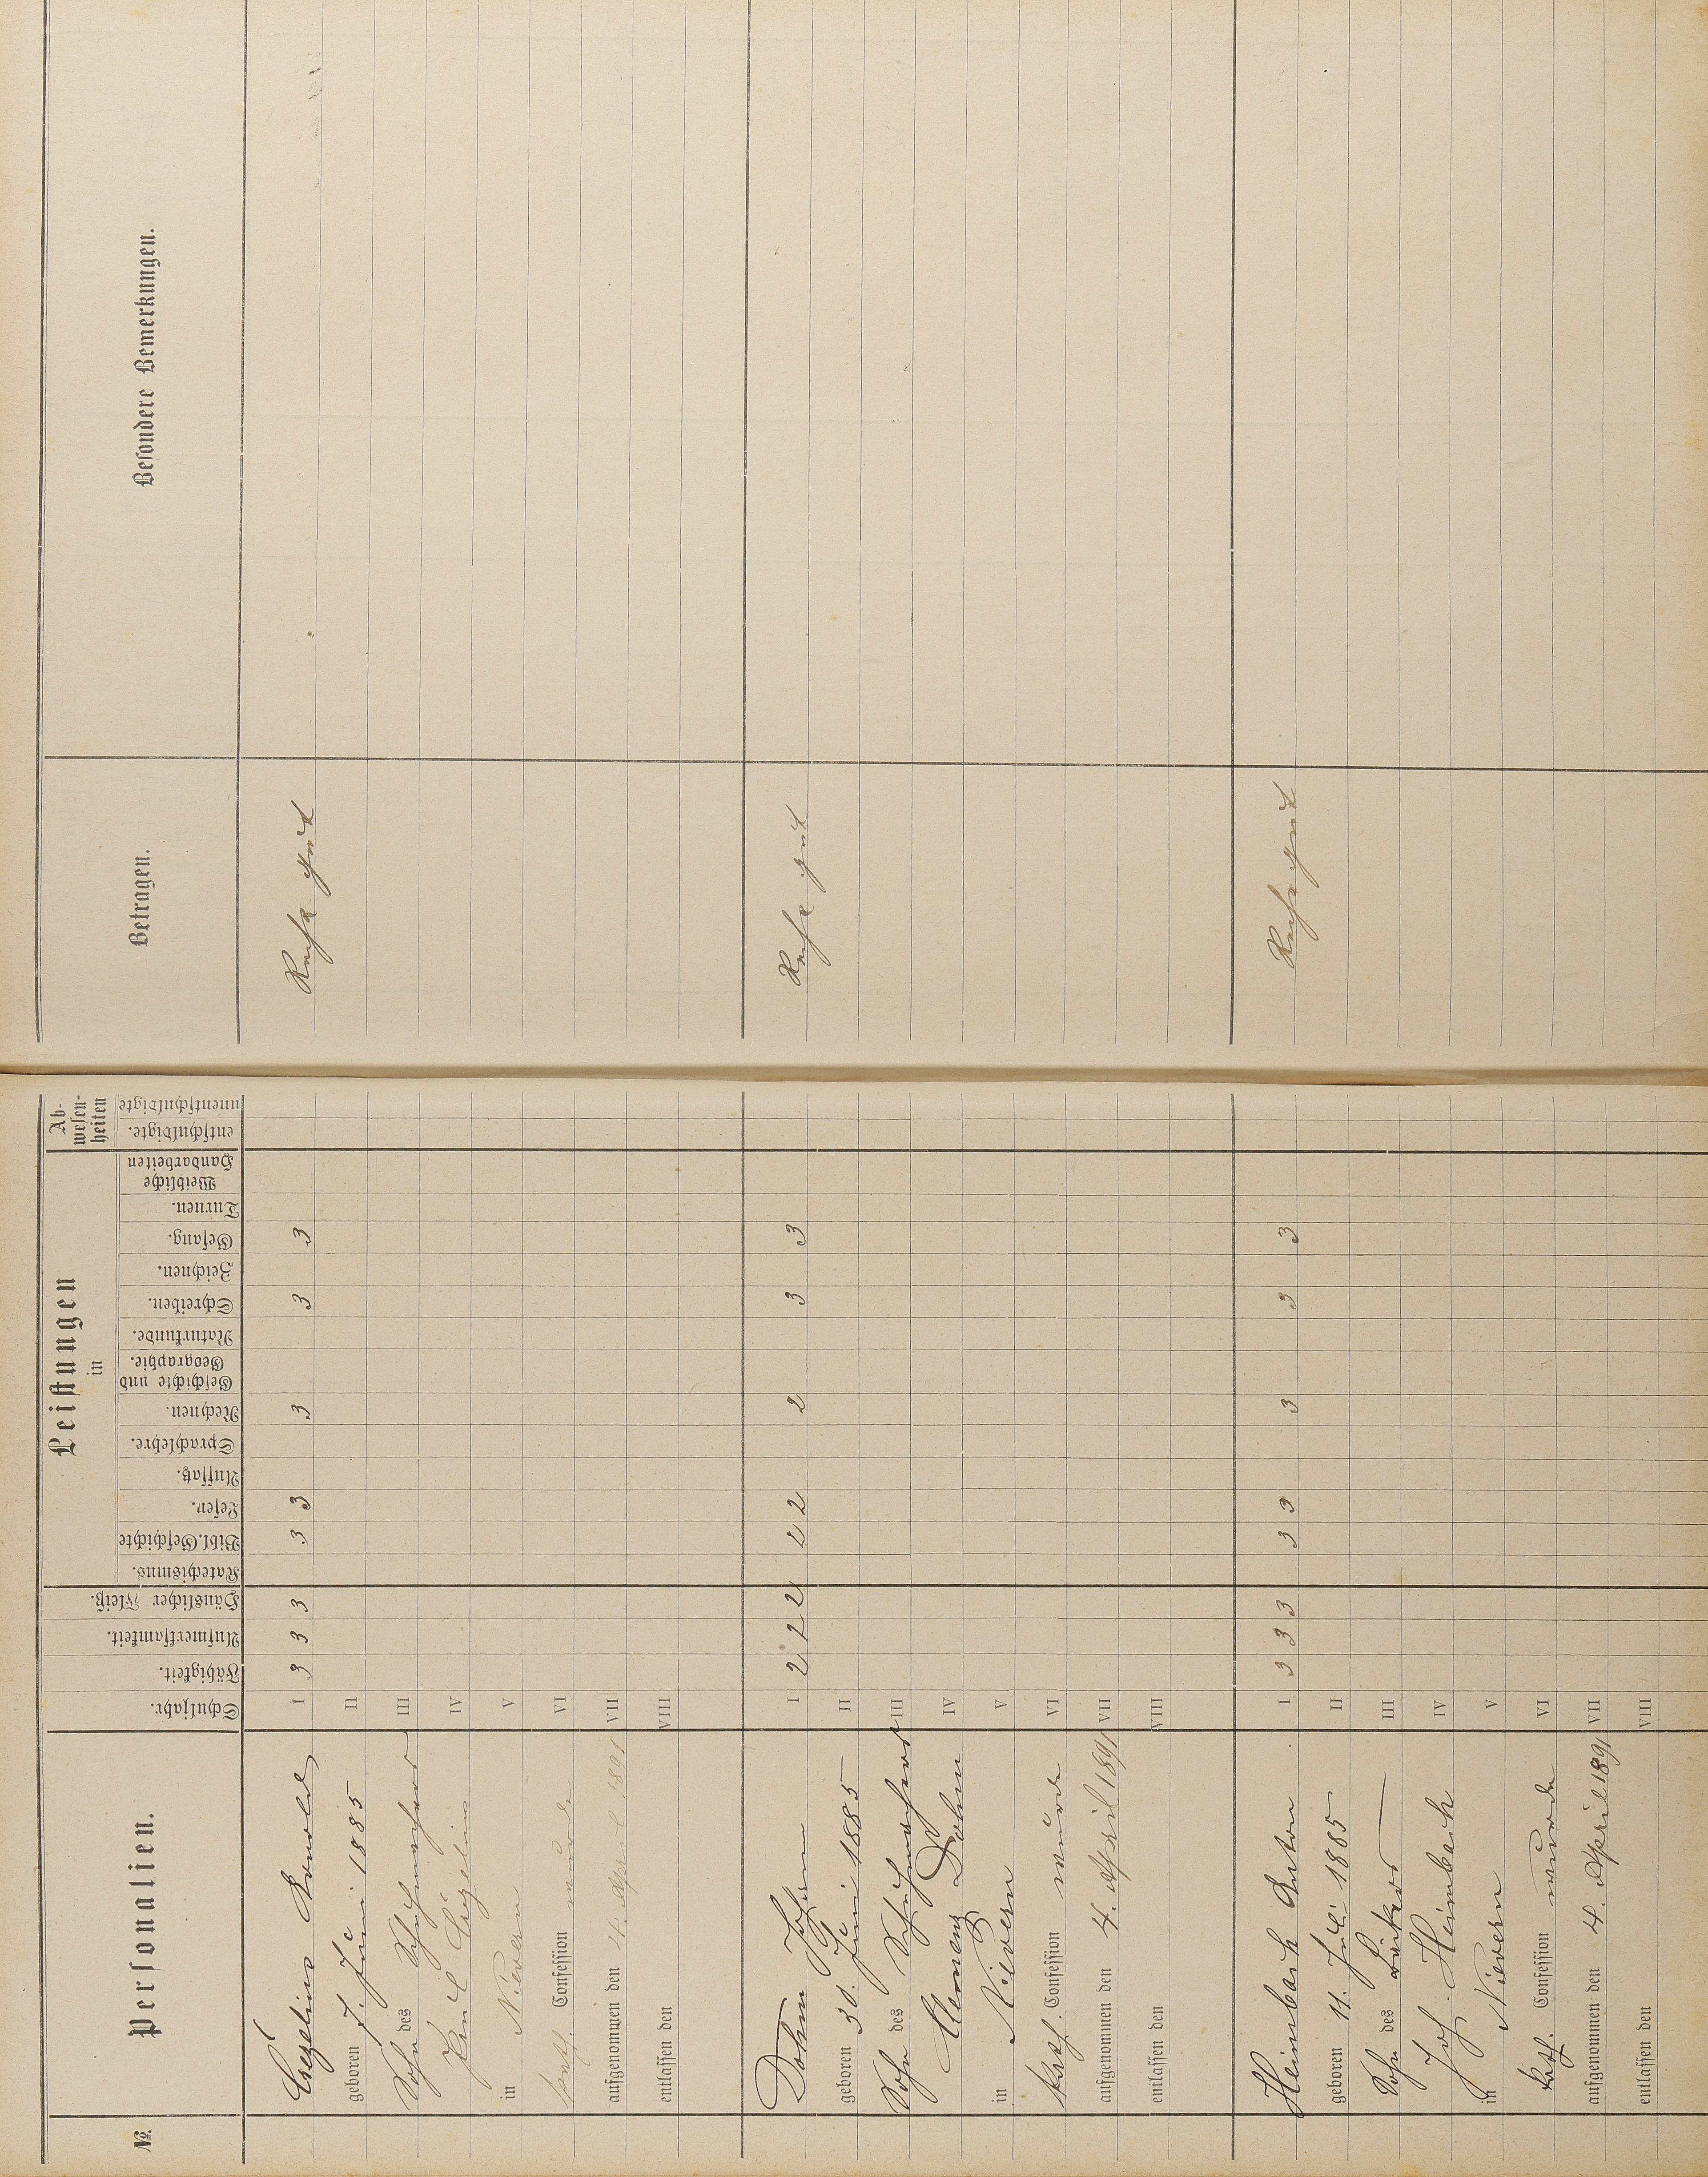 №.
Personalien.
Schuljahr.
Fähigkeit.
Aufmerksamkeit.
Häuslicher Fleiß.
Leistungen
in
Katechismus.
Bibl. Geschichte
Lesen.
Aufsatz.
Sprachlehre.
Rechnen.
Geschichte und
Geographie.
Naturkunde.
Schreiben.
Zeichnen.
Gesang.
Turnen.
Weibliche
Handarbeiten
Ab-
wesen-
heiten
entschuldigte.
unentschuldigte
Betragen.
Besondere Bemerkungen.
I 3 3 3 3 3 3 3 3 Recht gut
geboren 7. Juni 1885 II
Sohn des Schuhmachers III
IV
in Nievern V
kath. Confession wurde VI
aufgenommen den 4. April 1891 VII
entlassen den VIII
Dohm Johann I 2 2 2 2 2 2 3 3 Recht gut
geboren 30. Juni 1885 II
Sohn des Schuhmachers III
Clemens Dohm IV
in Nievern V
kath. Confession wurde VI
aufgenommen den 4. April 1891 VII
entlassen den VIII
Heimbach Anton I 3 3 3 3 3 3 3 3 Recht gut
geboren 11. Juli 1885 II
Sohn des III
Joh. Heimbach IV
in Nievern V
kath. Confession wurde VI
aufgenommen den 4. April 1891 VII
entlassen den VIII